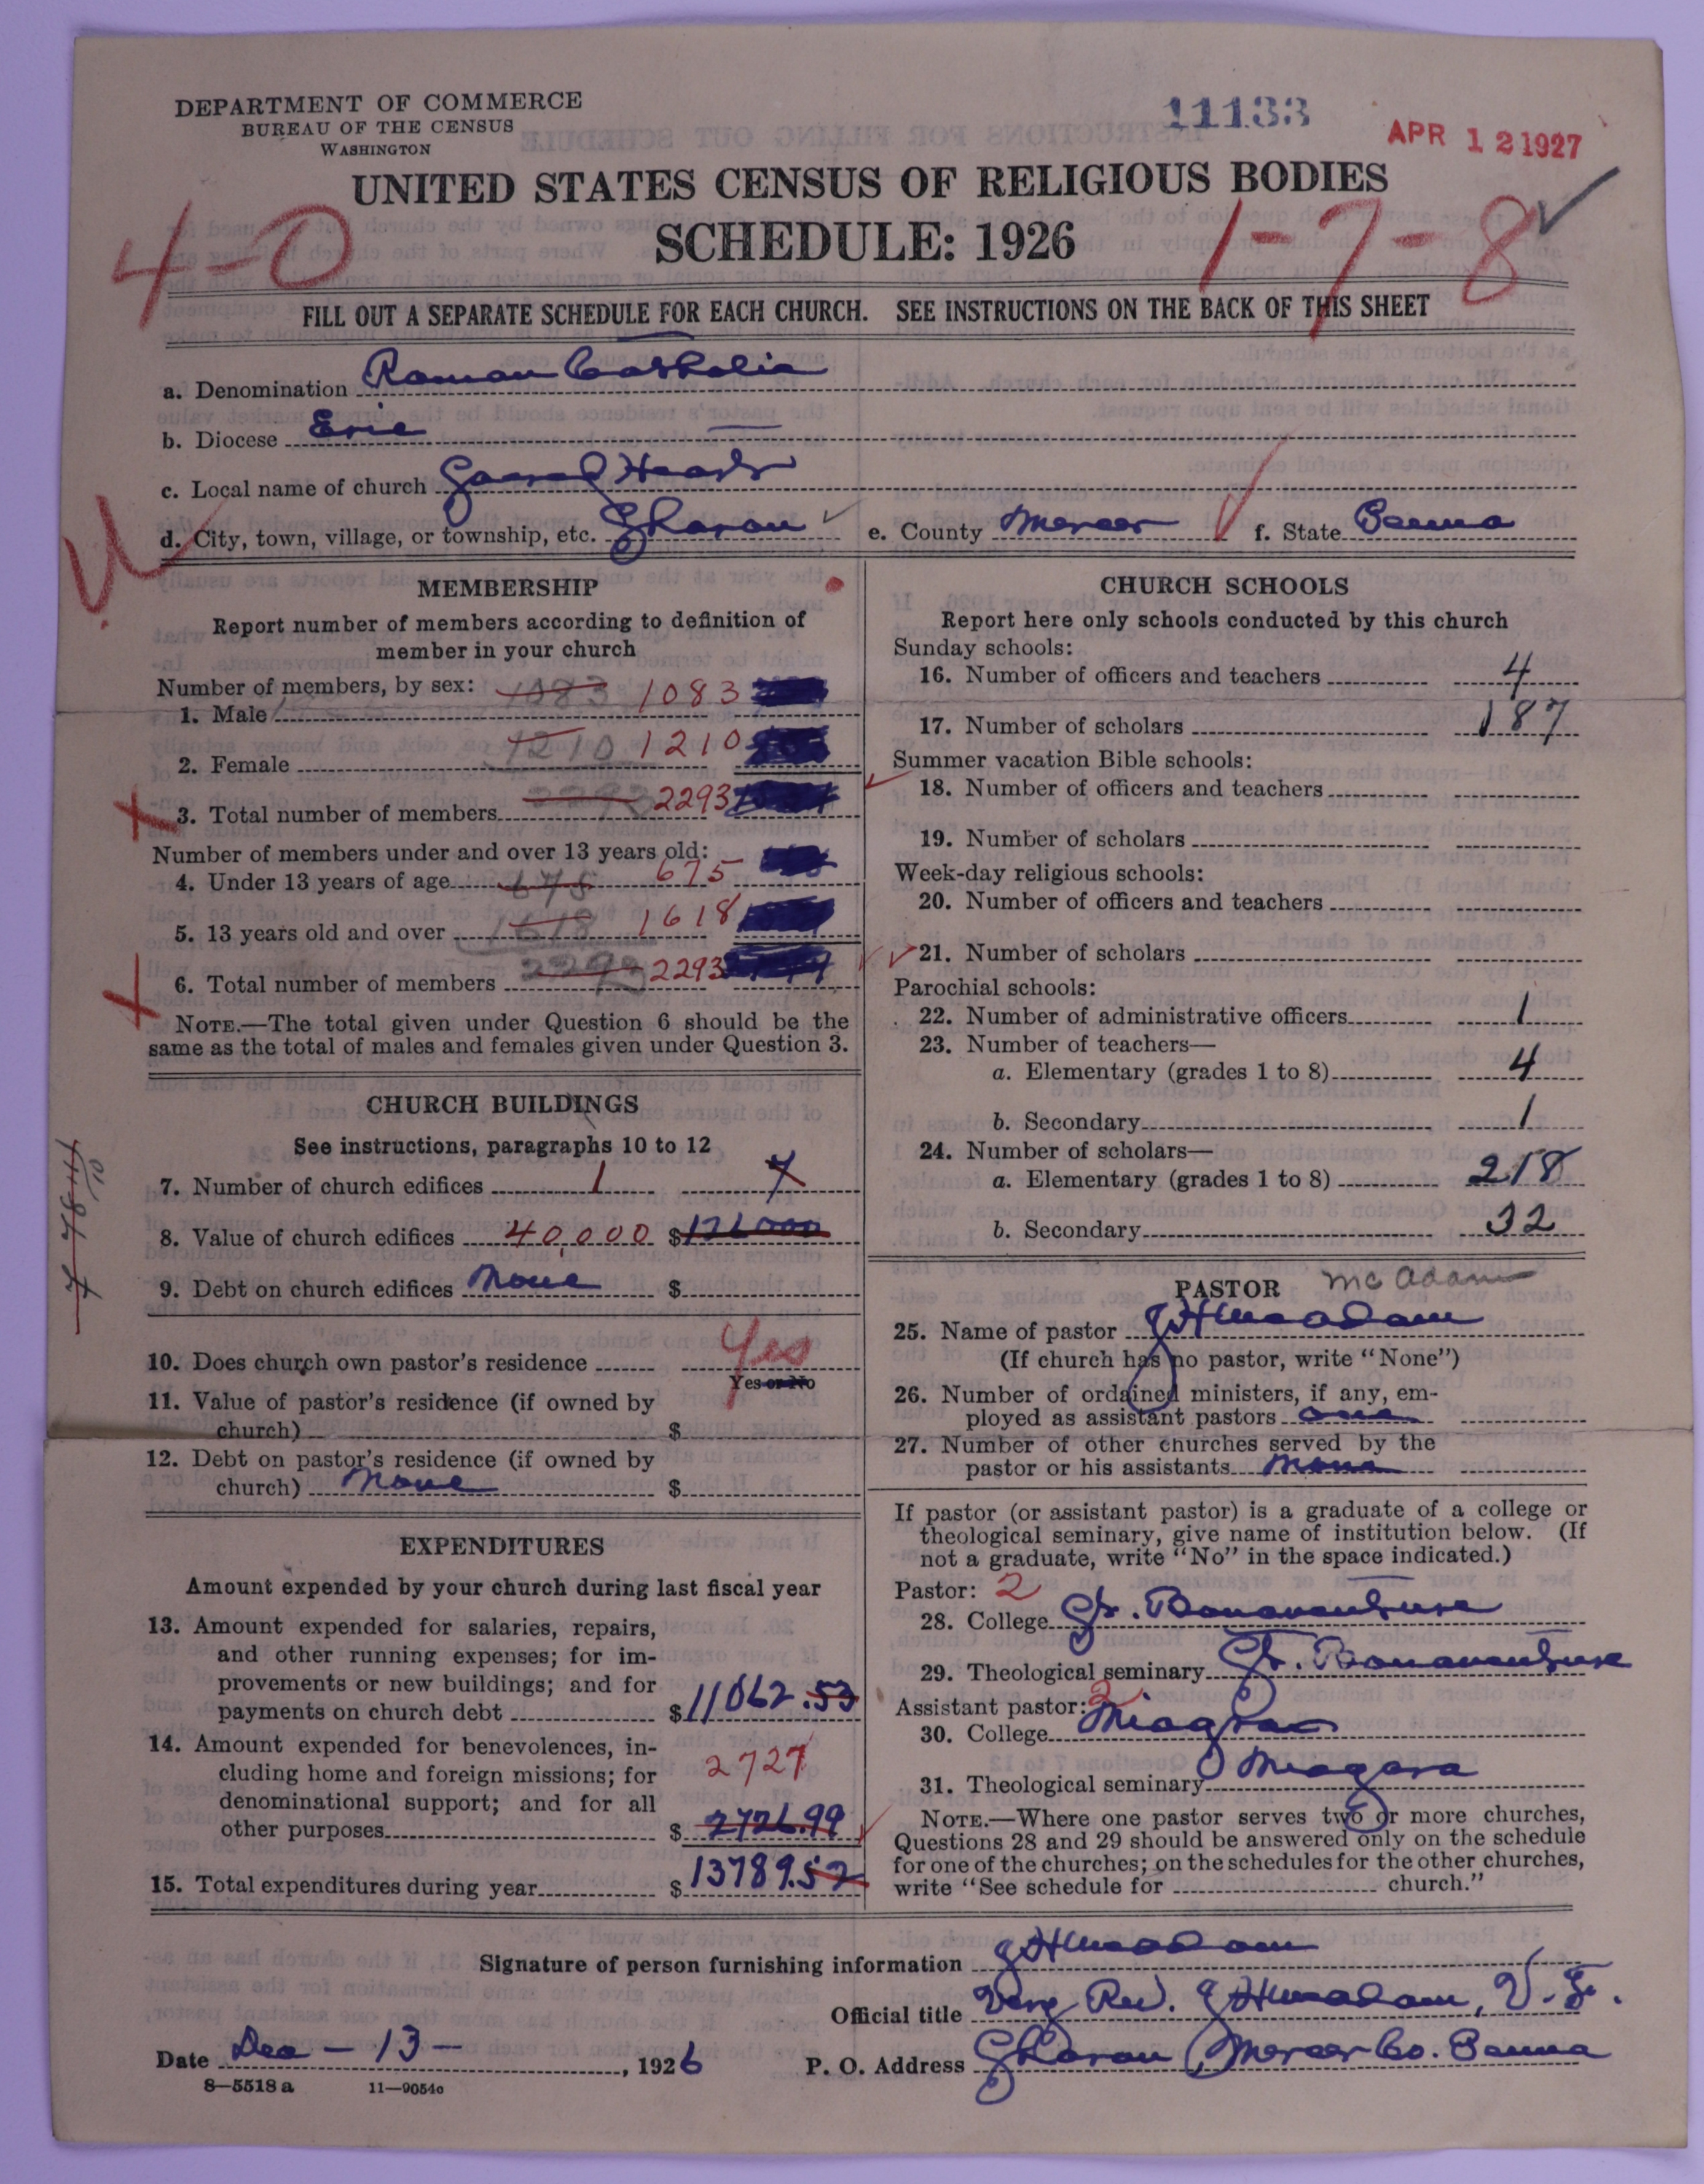 DEPARTMENT OF COMMERCE
BUREAU OF THE CENSUS
WASHINGTON
11133
APR 12 1927
UNITED STATES CENSUS OF RELIGIOUS BODIES
SCHEDULE: 1926
4-0
1-7-8
FILL OUT A SEPARATE SCHEDULE FOR EACH CHURCH. SEE INSTRUCTIONS ON THE BACK OF THIS SHEET
a. Denomination Roman Catholic
b. Diocese Erie
c. Local name of church Sacred Heart
d. City, town, village, or township, etc. Sharon e. County Mercer f. State Penna
MEMBERSHIP
Report number of members according to definition of
member in your church
Number of members, by sex:
1. Male 1083 1083
2. Female 1210 1210
3. Total number of members 2293 2293
Number of members under and over 13 years old:
4. Under 13 years of age 675 675
5. 13 years old and over 1618 1618
6. Total number of members 2293 2293
NOTE.—The total given under Question 6 should be the
same as the total of males and females given under Question 3.
CHURCH BUILDINGS
See instructions, paragraphs 10 to 12
7. Number of church edifices 1
8. Value of church edifices 40,000 $
9. Debt on church edifices None $
10. Does church own pastor's residence Yes
Yes or No
11. Value of pastor's residence (if owned by
church) $
12. Debt on pastor's residence (if owned by
church) None $
EXPENDITURES
Amount expended by your church during last fiscal year
13. Amount expended for salaries, repairs,
and other running expenses; for im-
provements or new buildings; and for
payments on church debt $11062.53
14. Amount expended for benevolences, in-
cluding home and foreign missions; for 2727
denominational support; and for all
other purposes $ 2726.99
15. Total expenditures during year $ 13789.52
CHURCH SCHOOLS
Report here only schools conducted by this church
Sunday schools:
16. Number of officers and teachers 4
17. Number of scholars 187
Summer vacation Bible schools:
18. Number of officers and teachers
19. Number of scholars
Week-day religious schools:
20. Number of officers and teachers
21. Number of scholars
Parochial schools:
22. Number of administrative officers 1
23. Number of teachers—
a. Elementary (grades 1 to 8) 4
b. Secondary 1
24. Number of scholars—
a. Elementary (grades 1 to 8) 218
b. Secondary 32
PASTOR Mc Adam
25. Name of pastor J H McAdam
(If church has no pastor, write "None")
26. Number of ordained ministers, if any, em-
ployed as assistant pastors one
27. Number of other churches served by the
pastor or his assistants None
If pastor (or assistant pastor) is a graduate of a college or
theological seminary, give name of institution below. (If
not a graduate, write "No" in the space indicated.)
Pastor: 2
28. College St. Bonaventure
29. Theological seminary St. Bonaventure
Assistant pastor: 2
30. College Niagra
31. Theological seminary Niagara
NOTE.—Where one pastor serves two or more churches,
Questions 28 and 29 should be answered only on the schedule
for one of the churches; on the schedules for the other churches,
write "See schedule for church."
Signature of person furnishing information J H McAdam
Official title Very Rev. J H McAdam, V. F.
Date Dec - 13 - , 1926 P. O. Address Sharon, Mercer Co. Penna
8—5518 a 11—9054c